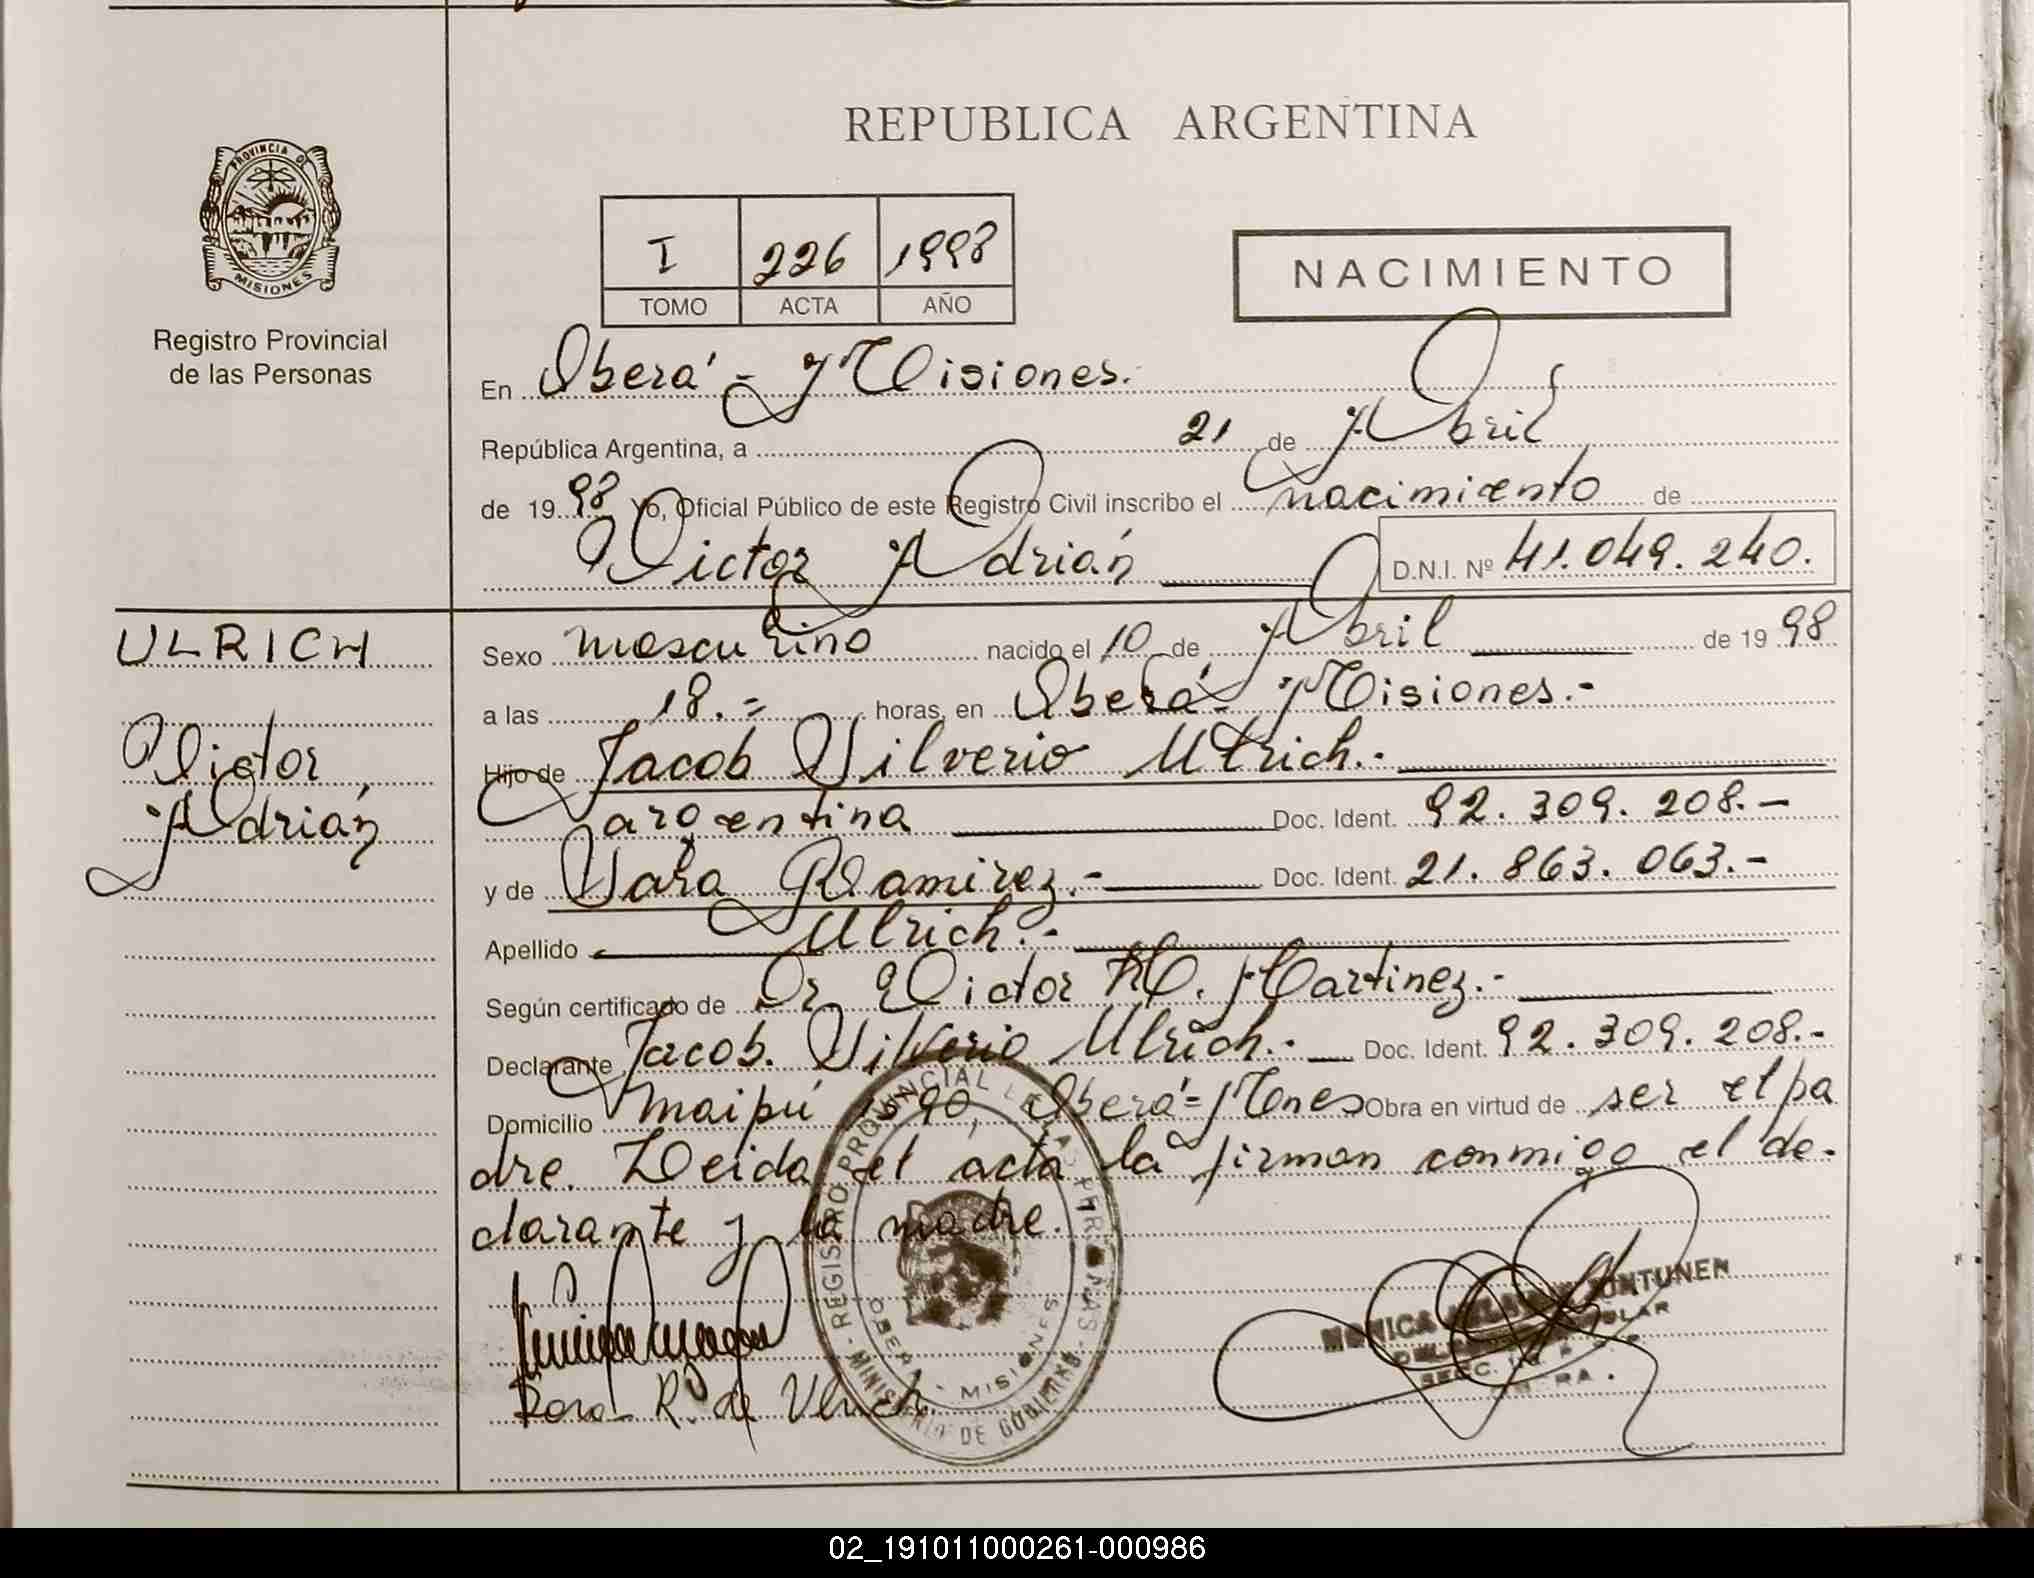 REPUBLICA ARGENTINA
PROVINCIA DE
MISIONES
Registro Provincial
de las Personas
I 226 1998
TOMO ACTA AÑO
NACIMIENTO
En Oberá - Misiones.
República Argentina, a 21 de Abril
de 1998 Yo, Oficial Público de este Registro Civil inscribo el nacimiento de
Victor Adrián D.N.I. Nº 41.049.240.
ULRICH
Victor
Adrián
Sexo masculino nacido el 10 de Abril de 1998
a las 18.= horas, en Oberá - Misiones.-
Hijo de Jacob Silverio Ulrich.-
argentina Doc. Ident. 92.309.208.-
y de Sara Ramirez.- Doc. Ident. 21.863.063.-
Apellido Ulrich.-
Según certificado de Dr Victor M. Martinez.-
Declarante Jacob Silverio Ulrich.- Doc. Ident. 92.309.208.-
Domicilio maipú Oberá = Mnes Obra en virtud de ser el pa
dre. Leida el acta la firman conmigo el de-
clarante y la madre.
R. de Ulrich
REGISTRO PROVINCIAL DE LAS PERSONAS
MINISTERIO DE GOBIERNO
OBERA - MISIONES
MONICA
02_191011000261-000986